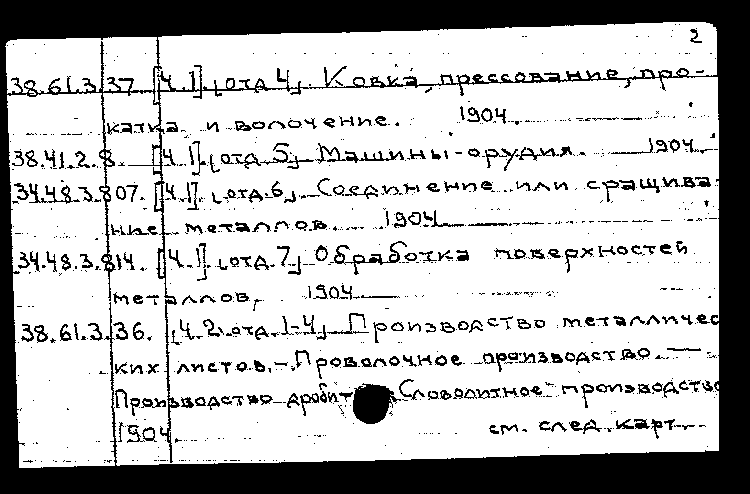 2
38.61.3.37. [Ч.1]. [отд 4]. Ковка, прессование, про-
катка и волочение. 1904.
38.41.2.8. [Ч.1]. [отд 5]. Машины-орудия. 1904.
34.48.3.807. [Ч.1]. [отд.6]. Соединение или сращива-
ние металлов. 1904.
34.48.3.814. [Ч.1]. [отд.7] Обработка поверхностей
металлов, 1904.
38.61.3.36. [Ч.2. отд.1-4] Производство металличес
ких листов. - Проволочное производство. —
Производство Словолитное производство
1904. см. след. карт.